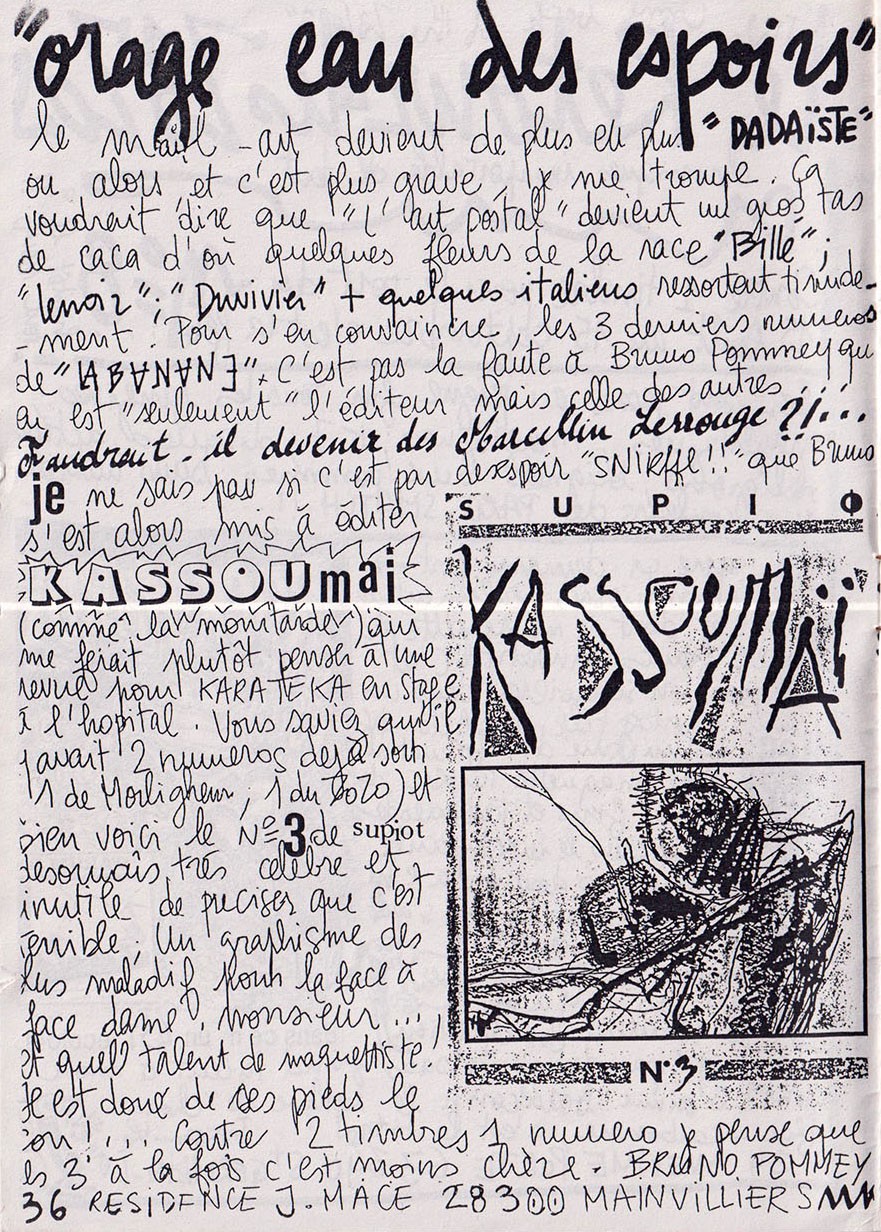 "orage eau des espoirs"
le mail-art devient de plus en plus "DADAÏSTE"
ou alors, et c'est plus grave, je me trompe. Ça
voudrait dire que "l'art postal" devient un gros tas
de caca d'où quelques fleurs de la race "Bille";
"lenoir"; "Duvivier" + quelques italiens ressortent timide-
-ment. Pour s'en convaincre, les 3 derniers numeros
de "LABANANE". C'est pas la faute à Bruno Pommey qui
en est "seulement" l'éditeur mais celle des autres...
Faudrait-il devenir des Marcellin Lerrouge ?!...
je ne sais pas si c'est par desespoir "SNIRFFE!!" que Bruno
s'est alors mis à éditer
KASSOUmai
(comme la moutarde) qui
me ferait plutôt penser à une
revue pour KARATEKA en stage
à l'hopital. Vous saviez qu'il
y avait 2 numeros dejà sorti
(1 de Morlighem; 1 du BoZo) et
bien voici le N° 3 de supiot
desormais très celèbre et
inutile de preciser que c'est
terrible; Un graphisme des
plus maladif pour la face à
face dame, monsieur...
et quel talent de maquettiste!
Il est donc de ses pieds le
bon!... Contre 2 timbres 1 numero je pense que
les 3 à la fois c'est moins chère. BRUNO POMMEY
36 RESIDENCE J. MACE 28300 MAINVILLIERS
SUPIO
KASSOUMAÏ
N°3